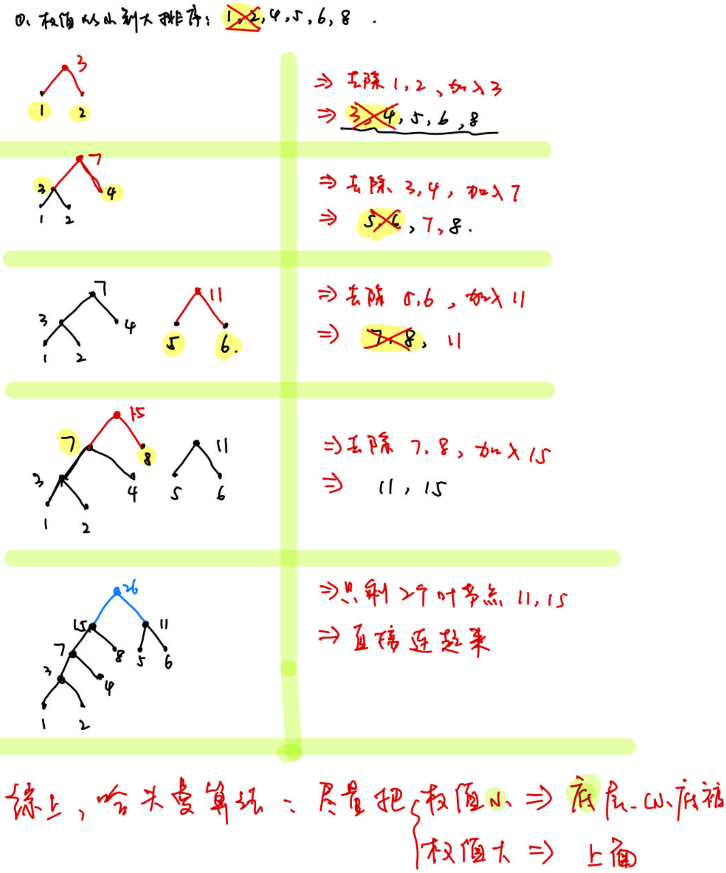 ①、权值从小到大排序：1,2,4,5,6,8.
3
1 2
⇒ 去除1,2，加入3
⇒ 3,4,5,6,8
7
3 4
1 2
⇒ 去除 3,4，加入7
⇒ 5,6,7,8.
7 11
3 4 5 6.
1 2
⇒ 去除 5,6，加入11
⇒ 7,8, 11
15
7 8 11
3 4 5 6
1 2
⇒ 去除 7,8，加入15
⇒ 11,15
26
15 11
7 8 5 6
3 4
1 2
⇒ 只剩2个叶节点 11,15
⇒ 直接连起来
综上，哈夫曼算法：尽量把 权值小 ⇒ 底层
权值大 ⇒ 上面